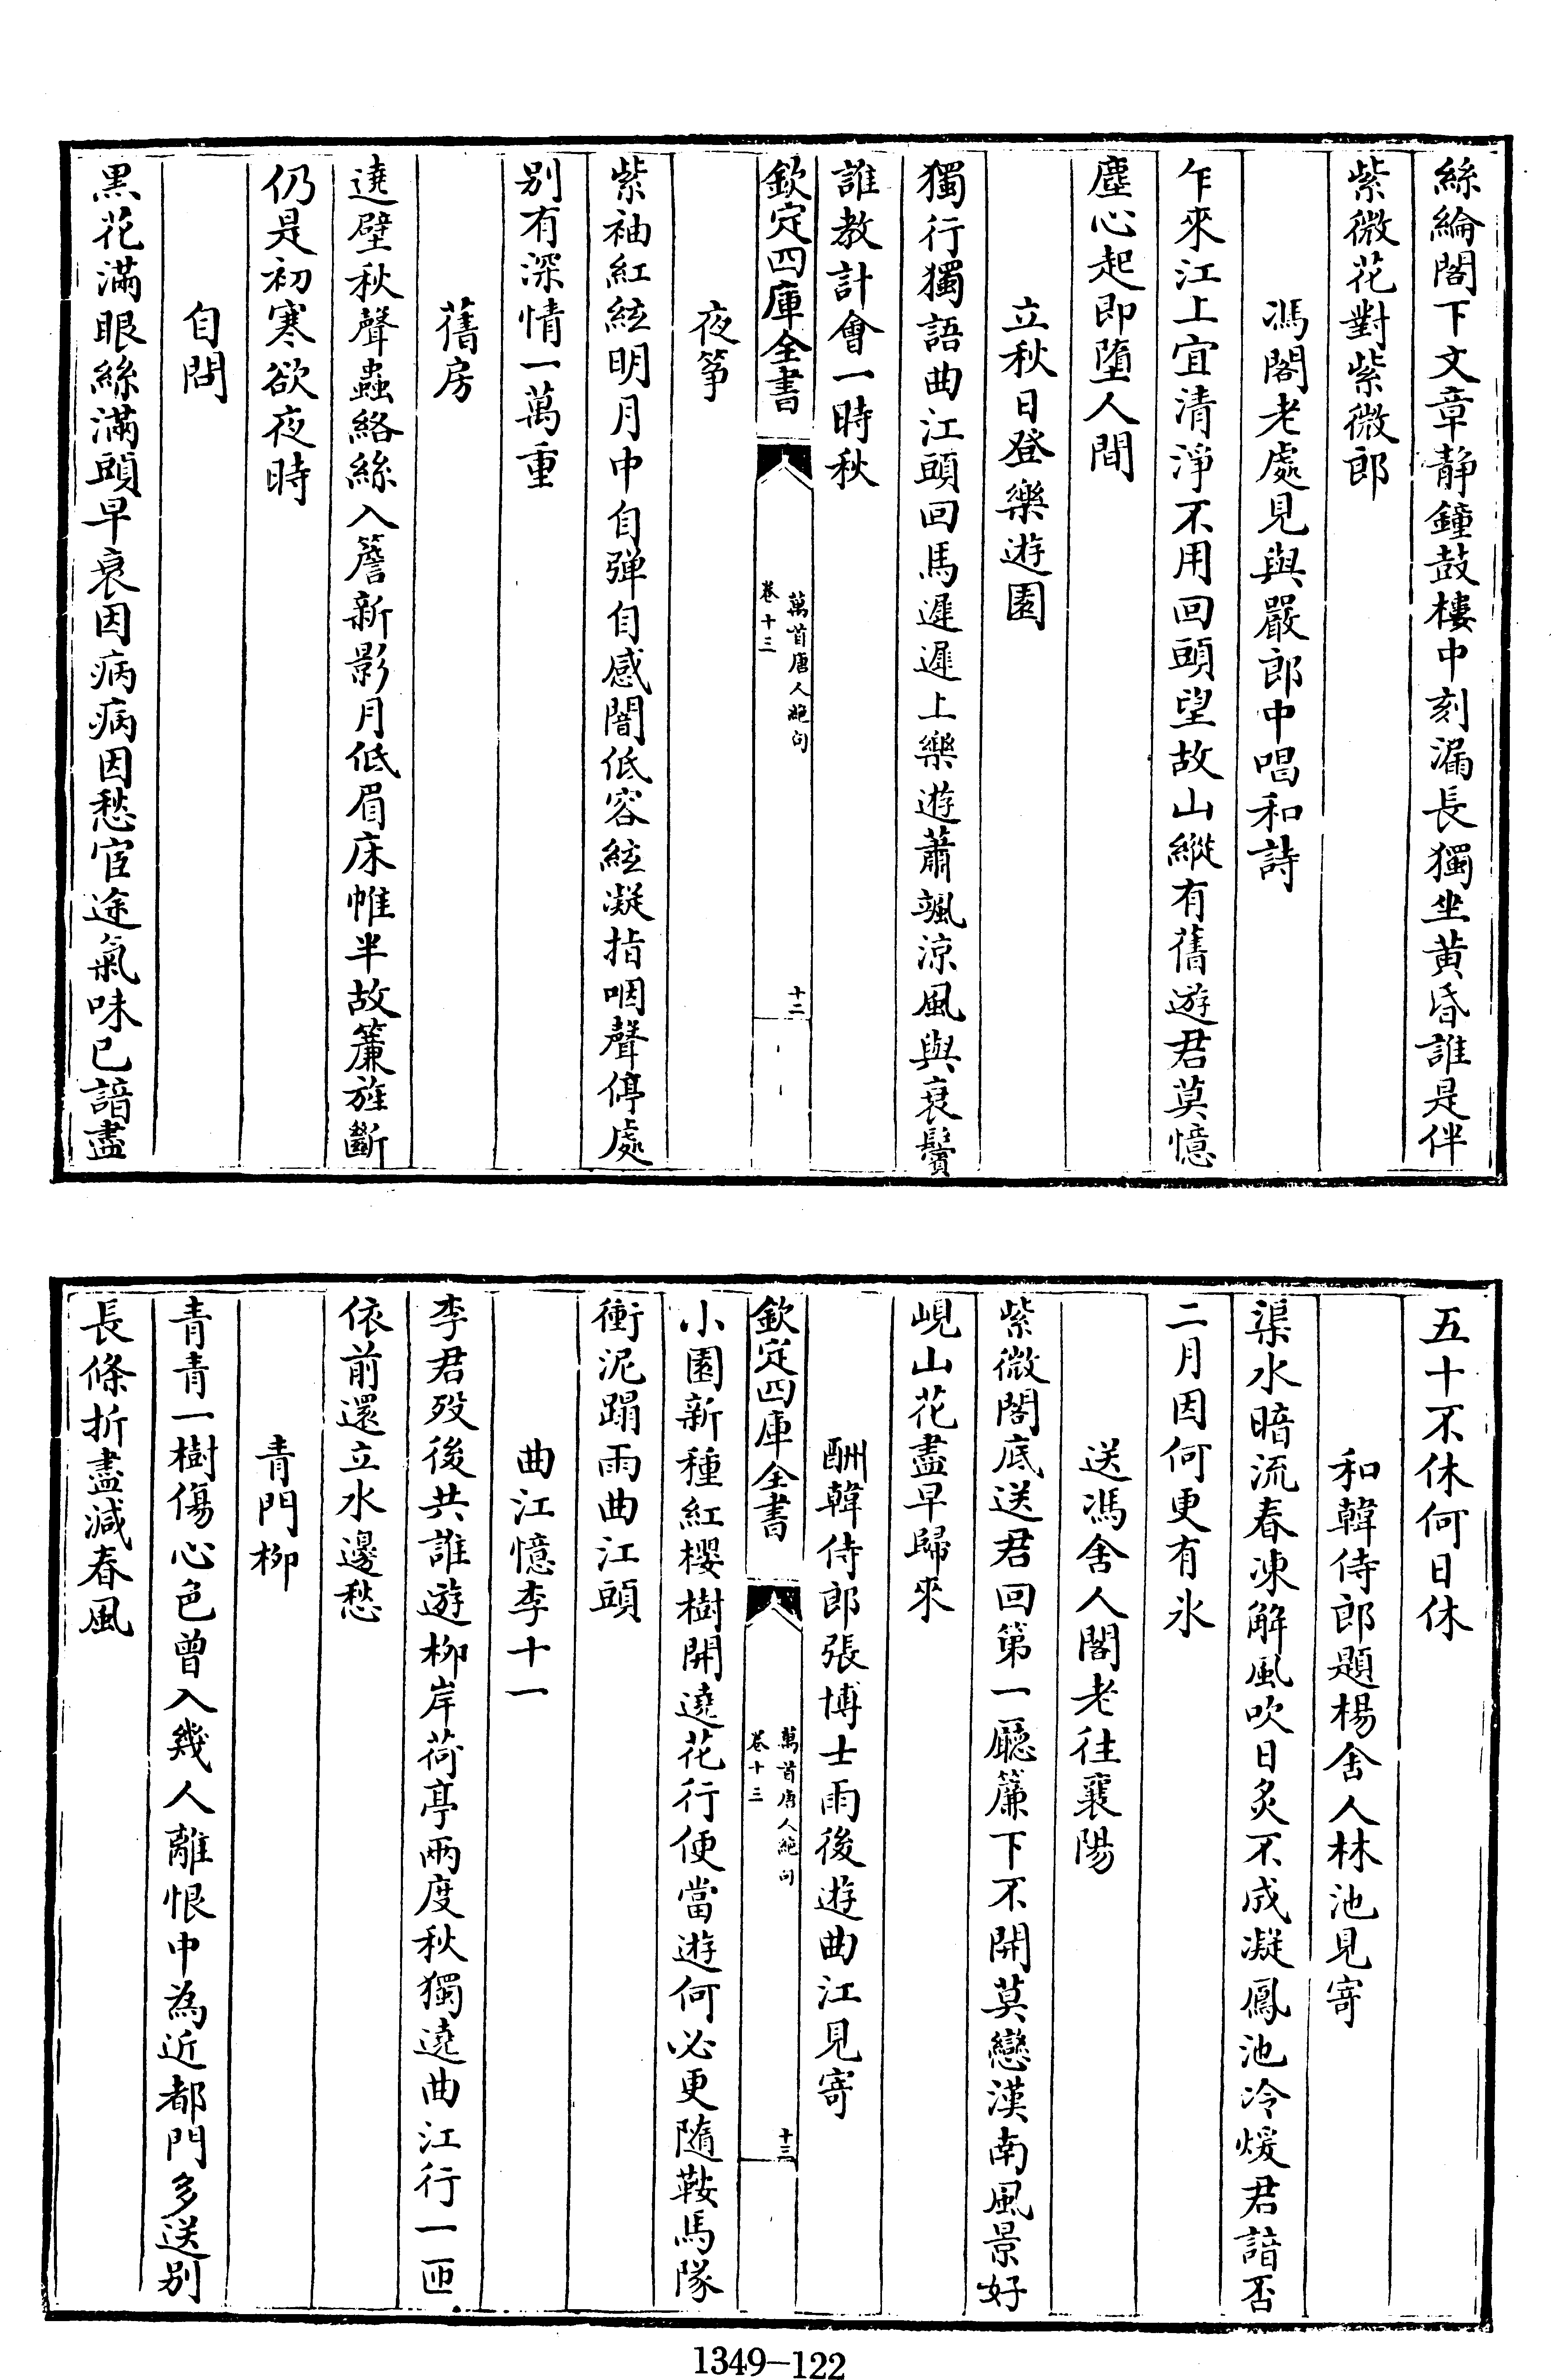 絲綸閣下文章靜鐘鼓樓中刻漏長獨坐黄昏誰是伴
紫微花對紫微郎
馮閣老處見與嚴郎中唱和詩
乍來江上宜清淨不用回頭望故山縱有舊遊君莫憶
塵心起即墮人間
立秋日登樂遊園
獨行獨語曲江頭回馬遲遲上樂遊蕭颯涼風與衰鬢
誰教計會一時秋
欽定四庫全書
萬首唐人絶句
卷十三
十二
夜箏
紫袖紅絃明月中自彈自感闇低容絃凝指咽聲停處
别有深情一萬重
舊房
遶壁秋聲蟲絡絲入簷新影月低眉床帷半故簾旌斷
仍是初寒欲夜時
自問
黑花滿眼絲滿頭早衰因病病因愁宦途氣味已諳盡
五十不休何日休
和韓侍郎題楊舍人林池見寄
渠水暗流春凍解風吹日炙不成凝鳳池冷煖君諳否
二月因何更有氷
送馮舍人閣老往襄陽
紫微閣底送君回第一廳簾下不開莫戀漢南風景好
峴山花盡早歸來
酬韓侍郎張博士雨後遊曲江見寄
欽定四庫全書
萬首唐人絶句
卷十三
十三
小園新種紅櫻樹開遶花行便當遊何必更隨鞍馬隊
衝泥蹋雨曲江頭
曲江憶李十一
李君殁後共誰遊柳岸荷亭兩度秋獨遶曲江行一匝
依前還立水邊愁
青門柳
青青一樹傷心色曾入幾人離恨中為近都門多送别
長條折盡減春風
1349-122